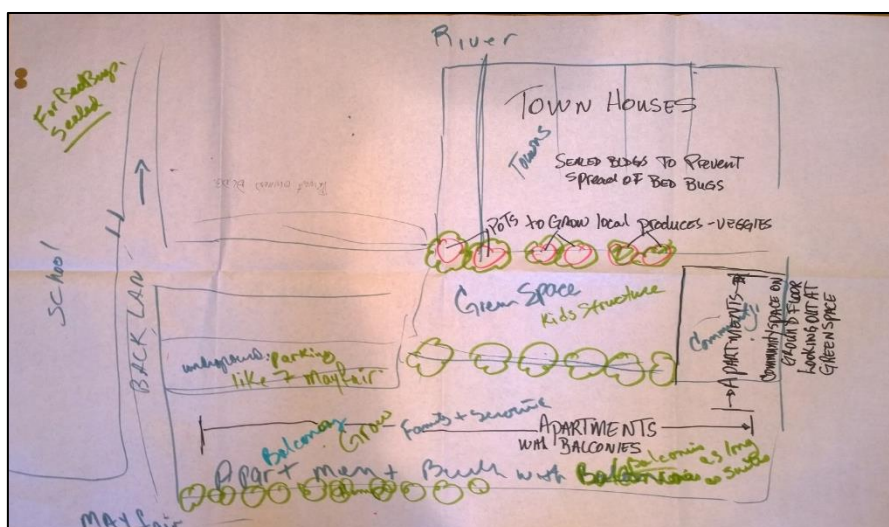 River
For Bed Bugs.
Sealed
TOWN HOUSES
Towns
SEALED BLDGS TO PREVENT
SPREAD OF BED BUGS
POTS TO GROW local produces - VEGGIES
School
BACK LAN
Green Space
Kids Structure
Community
APARTMENTS
COMMUNITY SPACE ON
GROUND FLOOR
LOOKING OUT AT
GREENSPACE
underground parking
like 7 Mayfair
Balconey
Grow
APARTMENTS
WITH BALCONIES
Apartment
with
Balconies
as long
as
MAYfair